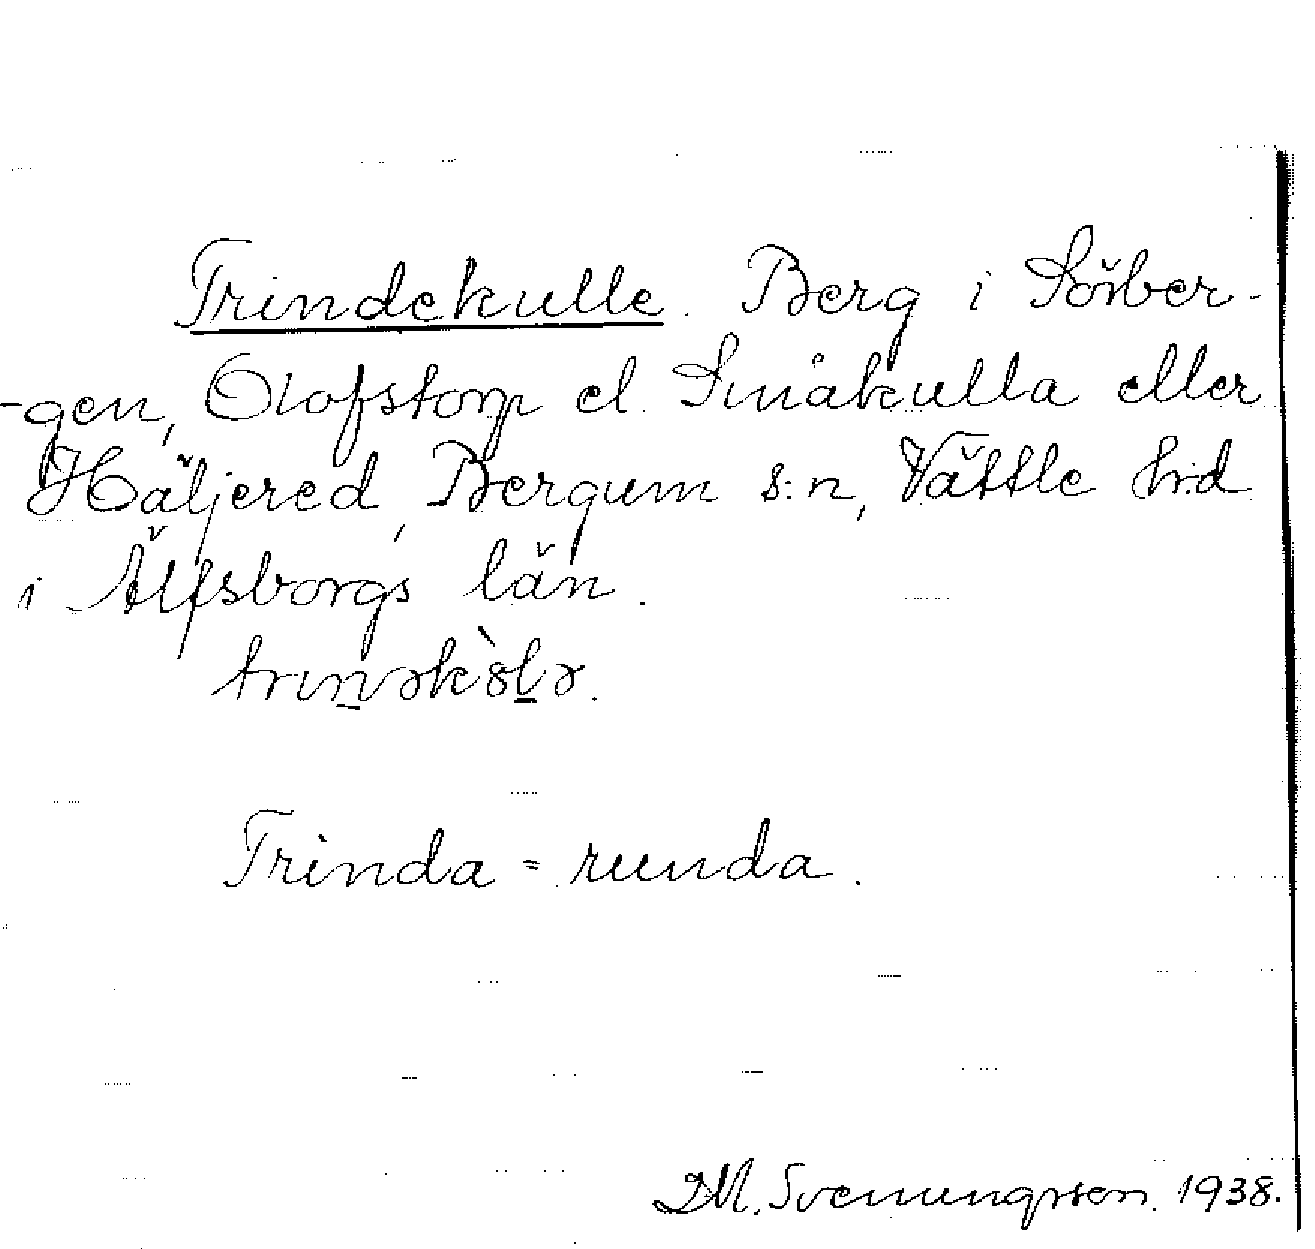 Trindekulle. Berg i Sörber-
-gen, Olofstorp el. Småkulla eller
Häljered, Bergum s:n, Vättle h:d
i Älfsborgs län.
Trinda = runda.
D.M. Svenungsson. 1938.